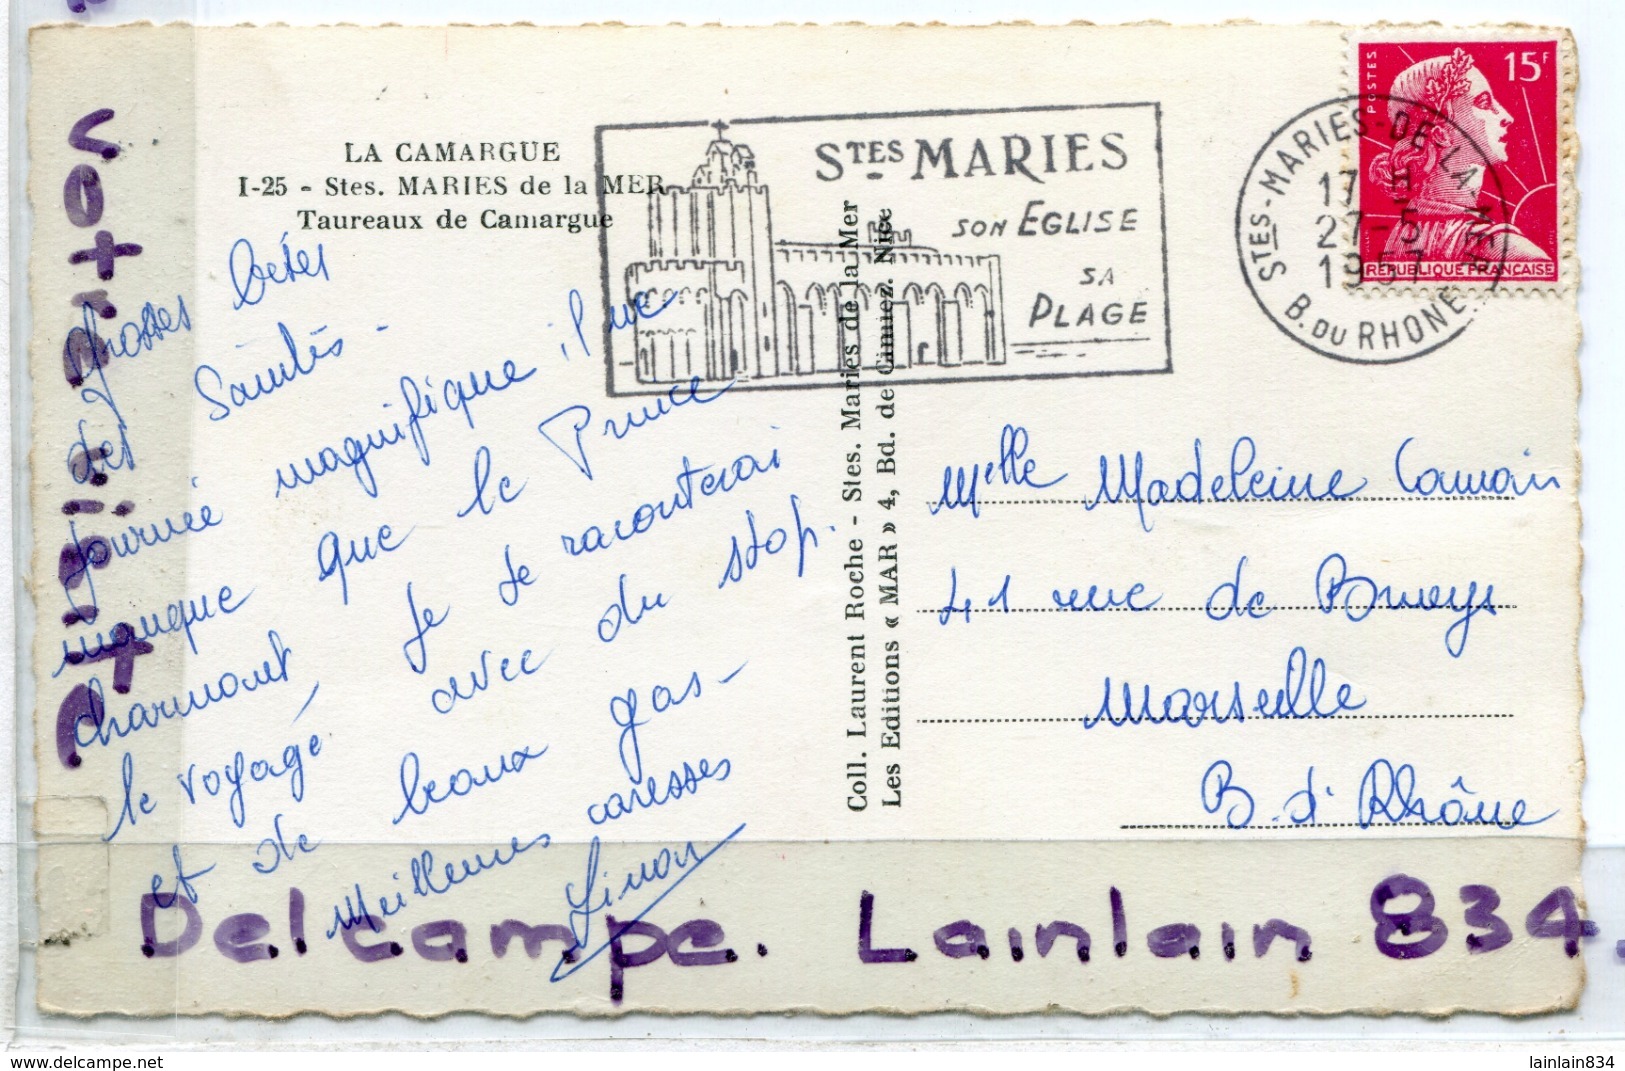 votre antiquité.
LA CAMARGUE
I-25 - Stes. MARIES de la MER
Taureaux de Camargue
STES MARIES
SON EGLISE
SA
PLAGE
STES-MARIES-DE-LA-MER
17 H
27-5
1957
B. DU RHONE
POSTES
15F
REPUBLIQUE FRANÇAISE
Grosses bêtes
des Saintes -
Journée magnifique, il ne
manque que le Prince
charmant, je te raconterai
le voyage avec du stop.
et de beaux gas -
Meilleures caresses
Coll. Laurent Roche - Stes. Maries de la Mer
Les Editions « MAR » 4, Bd. de Cimiez. Nice
Mlle Madeleine
41 rue de Bruys
Marseille
B. d. Rhône
Delcampe. Lainlain 834.
www.delcampe.net
lainlain834